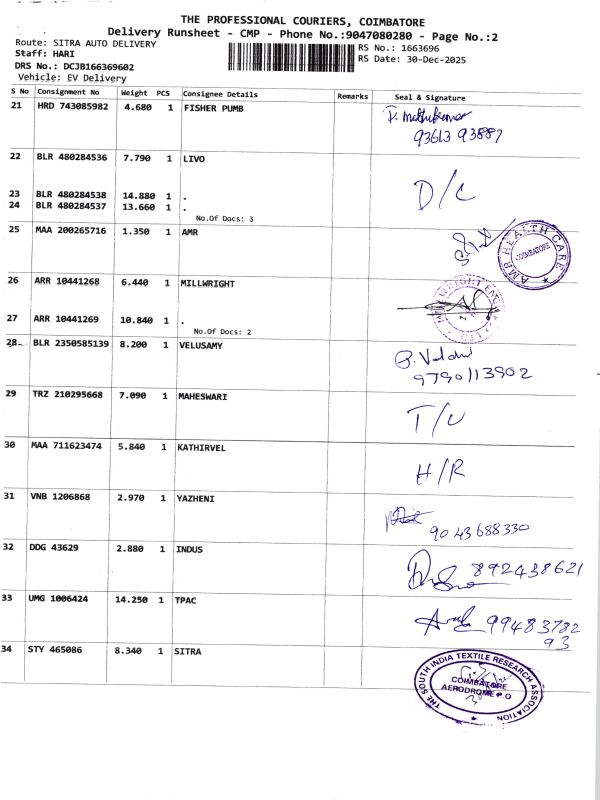 THE PROFESSIONAL COURIERS, COIMBATORE
Delivery Runsheet - CMP - Phone No.:9047080280 - Page No.:2
Route: SITRA AUTO DELIVERY
RS No.: 1663696
Staff: HARI
RS Date: 30-Dec-2025
DRS No.: DCJB166369602
Vehicle: EV Delivery
S No Consignment No Weight PCS Consignee Details Remarks Seal & Signature
21 HRD 743085982 4.680 1 FISHER PUMB
93613 93887
22 BLR 480284536 7.790 1 LIVO
D/C
23 BLR 480284538 14.880 1 .
24 BLR 480284537 13.660 1 .
No.Of Docs: 3
25 MAA 200265716 1.350 1 AMR
AMR HEALTH CARE
COIMBATORE
26 ARR 10441268 6.440 1 MILLWRIGHT
27 ARR 10441269 10.840 1 .
No.Of Docs: 2
28 BLR 2350585139 8.200 1 VELUSAMY
9790113902
29 TRZ 210295668 7.090 1 MAHESWARI
T/U
30 MAA 711623474 5.840 1 KATHIRVEL
H/R
31 VNB 1206868 2.970 1 YAZHENI
9043688330
32 DDG 43629 2.880 1 INDUS
892438621
33 UMG 1006424 14.250 1 TPAC
99483782
93
34 STY 465086 8.340 1 SITRA
THE SOUTH INDIA TEXTILE RESEARCH ASSOCIATION
COIMBATORE
AERODROME P.O